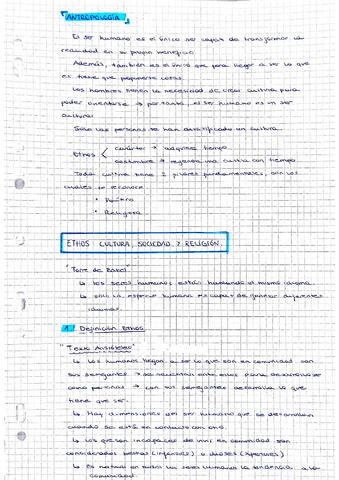 ANTROPOLOGÍA
El ser humano es el único ser capaz de transformar la
realidad en su propio beneficio.
Además, también es el único que para llegar a ser lo que
es tiene que
Los hombres tienen la necesidad de crear cultura para
poder orientarse → por tanto, el ser humano es un ser
cultural
Solo las personas se han cultura.
Ethos
carácter → adquiere tiempo
costumbre → requiere una cultura con tiempo
Toda cultura tiene 2 pilares fundamentales, con los
cuales se reconoce
• Política
• Religiosa
ETHOS CULTURA, SOCIEDAD Y RELIGIÓN.
"Torre de Babel"
↳ los seres humanos están hablando el mismo idioma
↳ solo la especie humana es capaz de generar diferentes
idiomas.
1. Definición Ethos
"Texto Aristóteles"
↳ Los humanos llegan a ser lo que son en comunidad con
sus semejantes → se necesitan entre ellos para desarrollarse
como personas → con sus semejantes desarrolla lo que
tiene que ser.
↳ Hay dimensiones del ser humano que se desarrollan
cuando se está en contacto con otro.
↳ Los que son incapaces de vivir en comunidad son
considerados bestias (inferiores) o dioses (superiores)
↳ Es natural en todos los seres humanos la tendencia a la
comunidad.